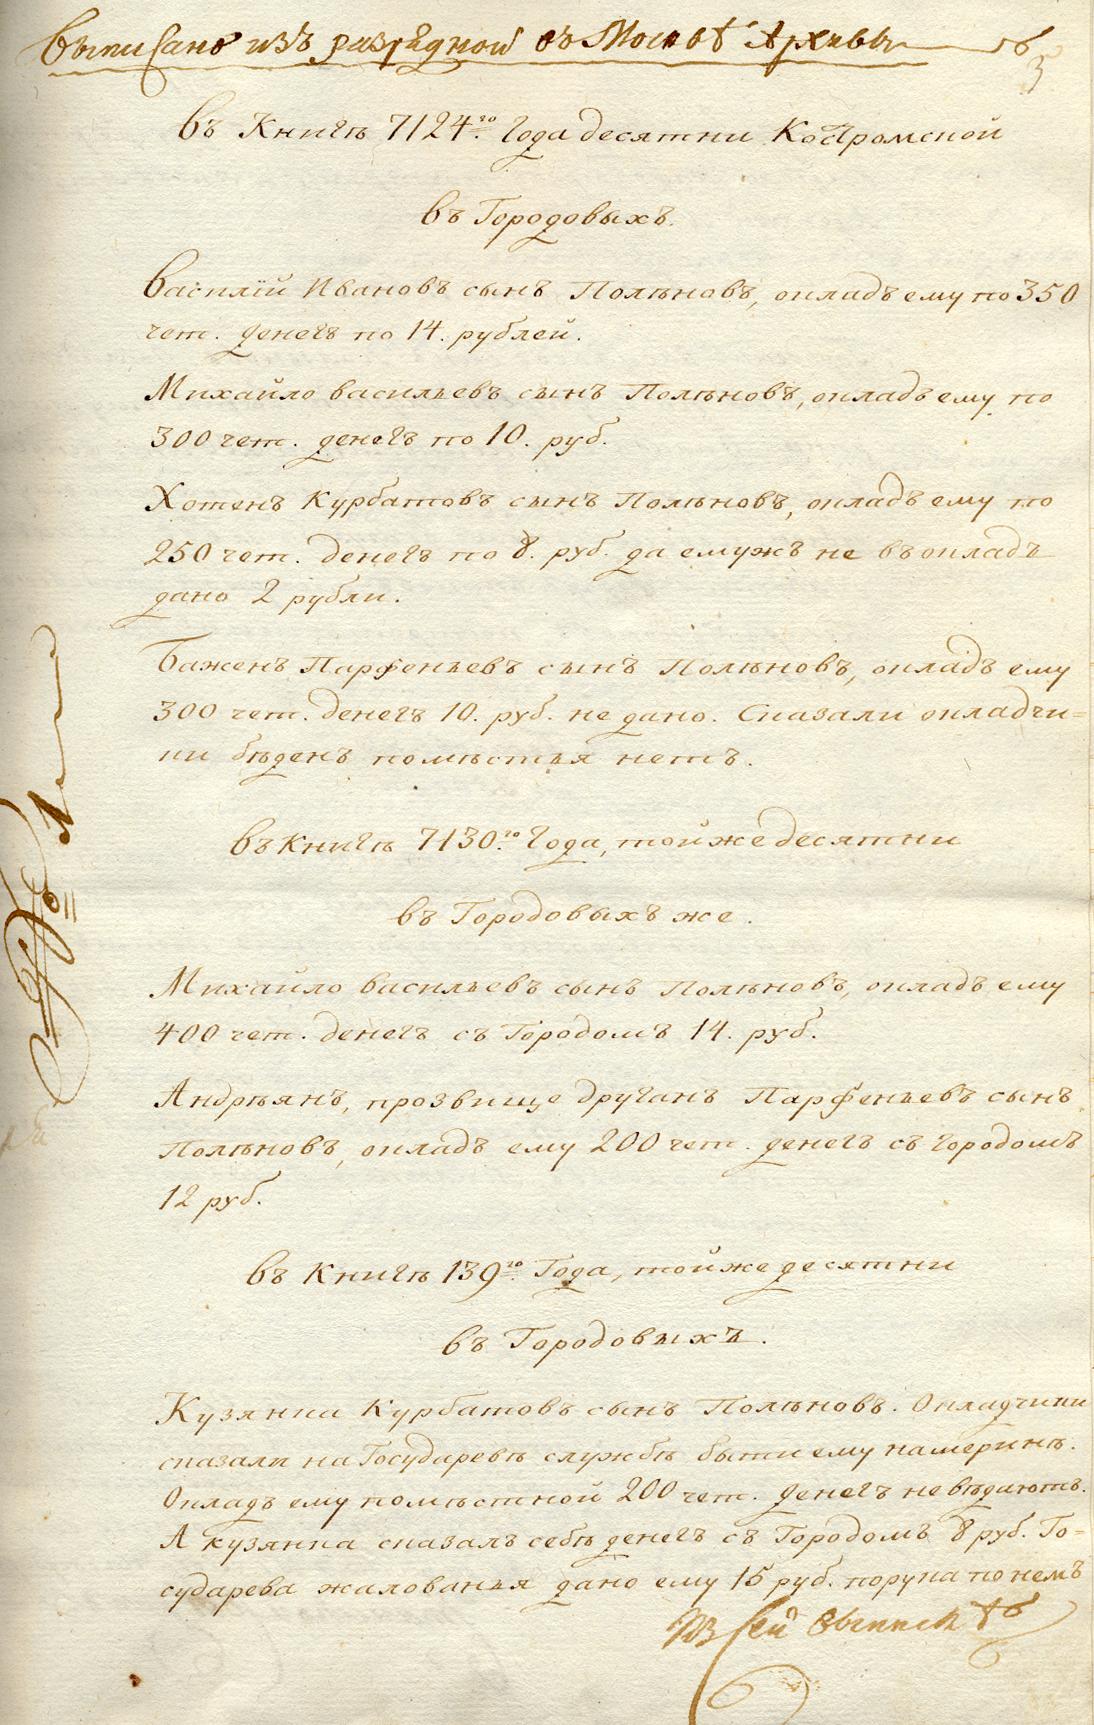 Выписано изъ разрядной въ Москвѣ Архивы
въ Книгѣ 7124го. Года десятни Костромской
въ Городовыхъ.
Василій Ивановъ сынъ Полѣновъ, окладъ ему по 350
чет. денегъ по 14. рублей.
Михайло васильевъ сынъ Полѣновъ, окладъ ему по
300 чет. денегъ по 10. руб.
Хотенъ Курбатовъ сынъ Полѣновъ, окладъ ему по
250 чет. денегъ по 8. руб. да емужъ не въ окладъ
дано 2 рубли.
Баженъ Парфеньевъ сынъ Полѣновъ, окладъ ему
300 чет. денегъ 10. руб. не дано. Сказали окладчи=
ки бѣденъ помѣстья нетъ.
въ Книгѣ 7130.го Года, тойже десятни
въ Городовыхъ же.
Михайло васильевъ сынъ Полѣновъ, окладъ ему
400 чет. денегъ съ Городомъ 14. руб.
Андрѣянъ, прозвище друганъ Парфеньевъ сынъ
Полѣновъ, окладъ ему 200 чет. денегъ съ городомъ
12 руб.
въ Книгѣ 139го. Года, тойже десятни
въ Городовыхъ.
Кузянка Курбатовъ сынъ Полѣновъ. Окладчики
сказали на Государевѣ службѣ быти ему намеринъ.
Окладъ ему помѣстной 200 чет. денегъ невѣдаютъ.
А кузянка сказалъ себѣ денегъ съ Городомъ 8 руб. Го=
сударева жалованья дано ему 15 руб. порука по немъ
сей выписк